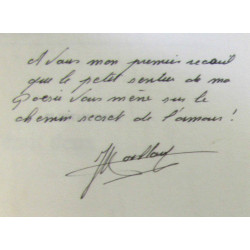 A vous mon premier recueil
que le petit sentier de ma
Poésie vous mène sur le
chemin secret de l'amour !